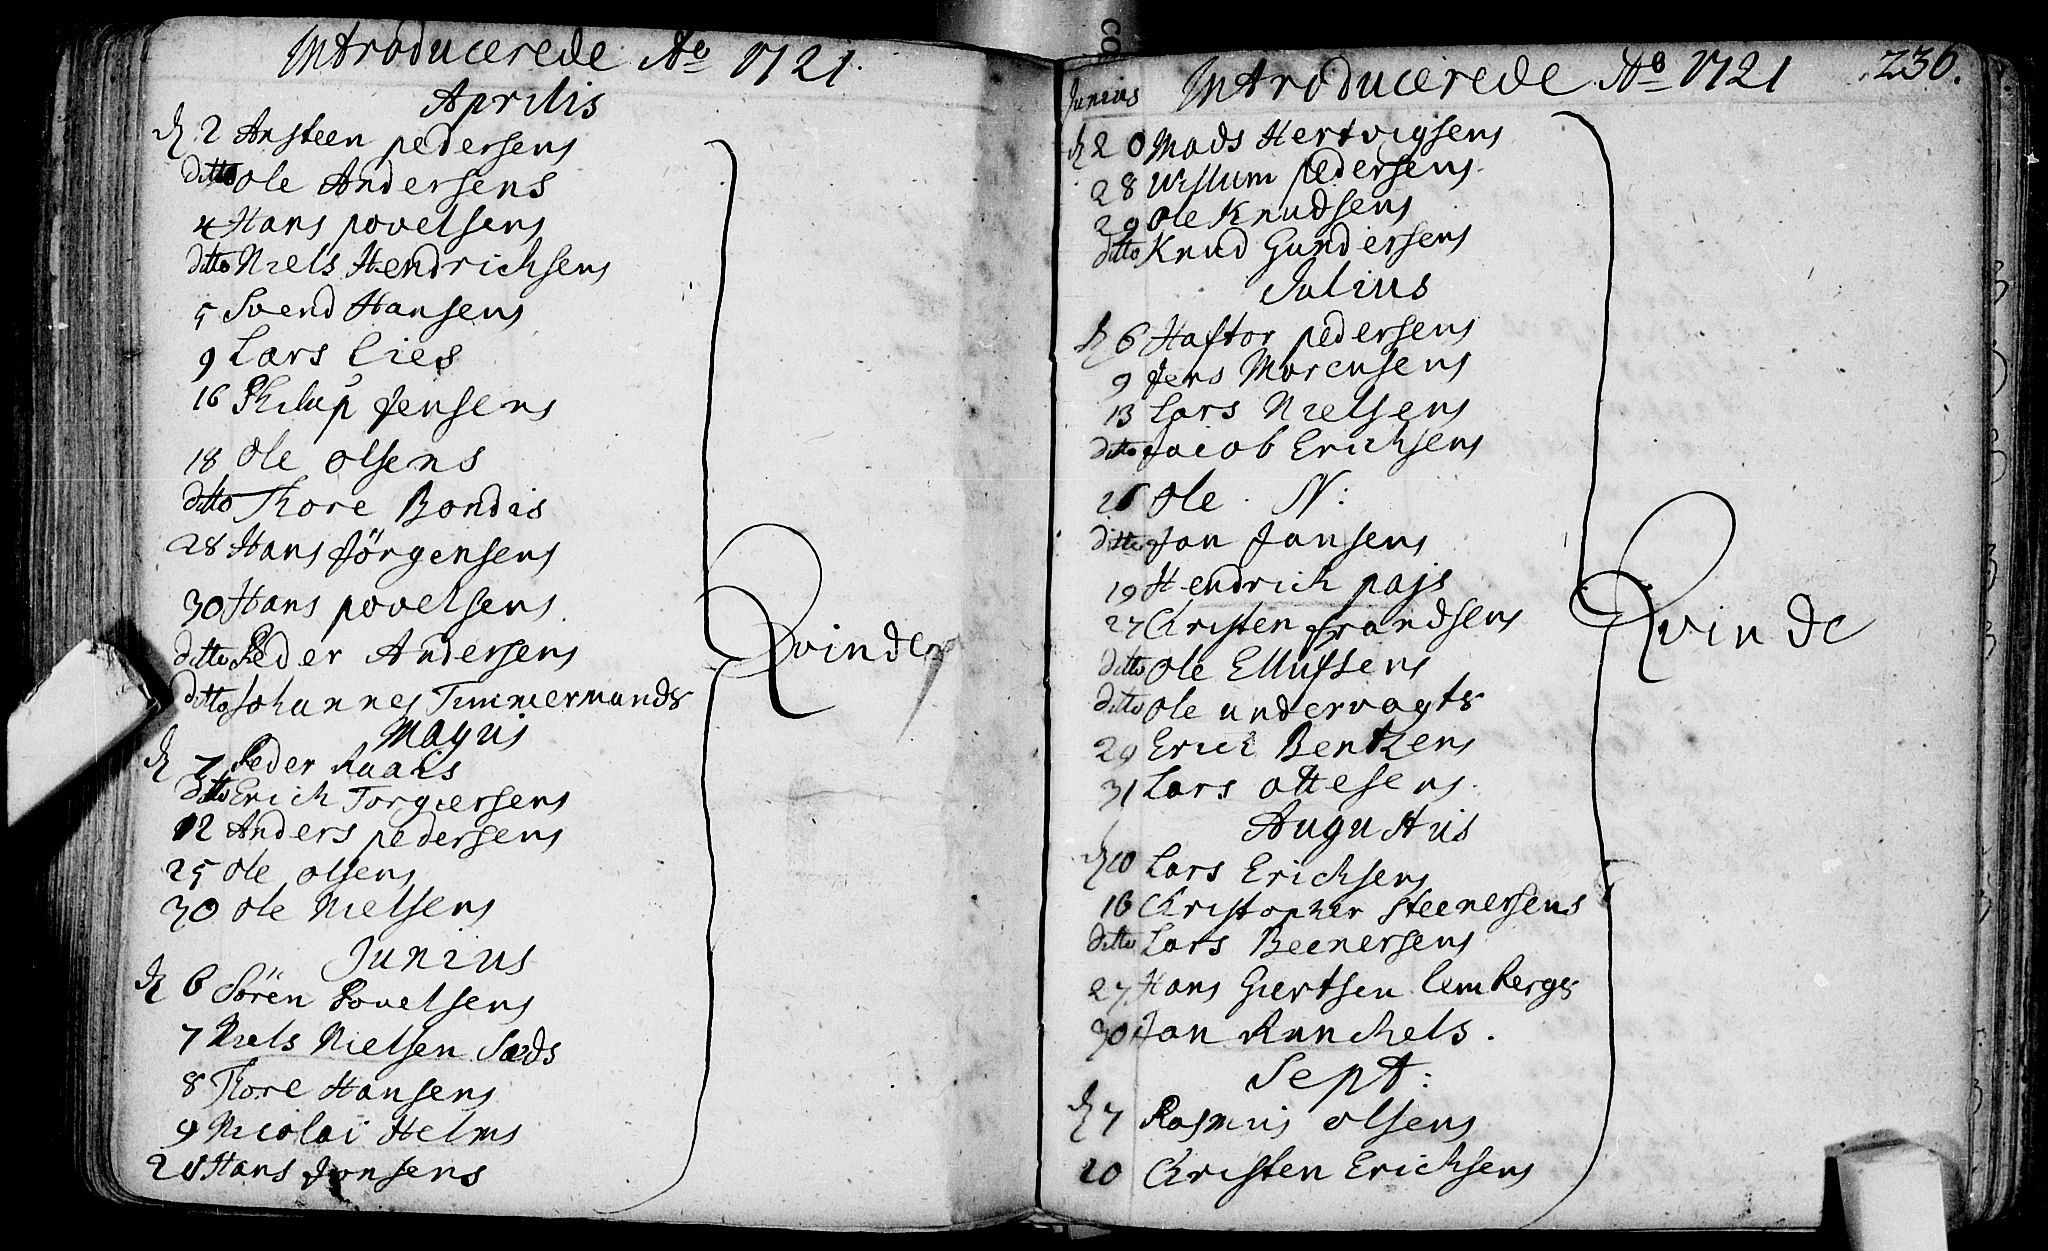 Introducerede Ao 1721.
Aprilis
d 2 Ansteen pedersens
ditto Ole Andersens
4 Hans povelsens
ditto Niels Hendrichsens
5 Svend Hansens
9 Lars Lies
16 Philup Jensens
18 Ole Olsens
ditto Thore Bondis
28 Hans Jörgensens
30 Hans povelsens
ditto Peder Andersens
ditto Johannes Timmermands
Qvinder
Mayus
d 7 Peder Raars
ditto Erich Torgiersens
12 Anders pedersens
25 Ole Olsens
30 Ole Nielsens
Junius
d 6 Sören Povelsens
7 Niels Nielsen Sæds
8 Thore Hansens
9 Nicolai Helms
28 Hans Jonsens
Junius Introducerede Ao 1721 236.
d 20 Mads Hertvigsens
28 Willum pedersens
29 Ole Knudsens
ditto Knud Gundersens
Julius
d 6 Haftor pedersens
9 Jens Marcusens
13 Lars Nielsens
ditto Jacob Erichsens
26 Ole N:
ditto Jan Jansens
19 Hendrich pajs
27 Christen frandsens
ditto Ole Ellufsens
ditto Ole undervagts
29 Erich Bentzens
31 Lars Ottesens
Qvinde
Augustus
d 10 Lars Erichsens
16 Christopher Steenersens
ditto Lars Beenersens
27 Hans Giertsen Lembergs
30 Jan Runchels.
Sept:
d 7 Rasmus Olsens
20 Christen Erichsens